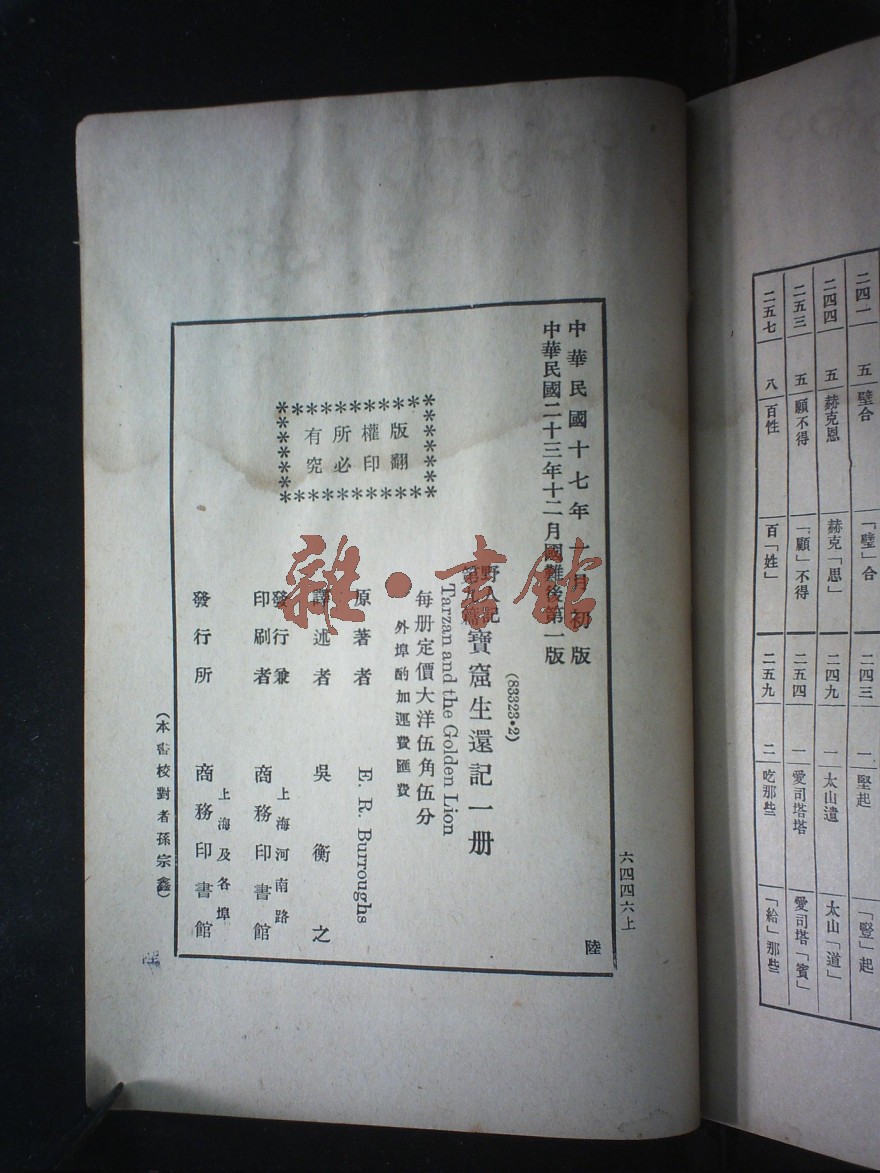 二四一 五 璧合 「璧」合 二四三 一 堅起 「豎」起
二四四 五 赫克恩 赫克「思」 二四九 一 太山遺 太山「道」
二五三 五 顧不得 「顧」不得 二五四 一 愛司塔塔 愛司塔「賓」
二五七 八 百性 百「姓」 二五九 二 吃那些 「給」那些
六四四六上
中華民國十七年一月初版
中華民國二十三年十二月國難後第一版
陸
(83323•2)
野人記
第九編
寶窟生還記一册
Tarzan and the Golden Lion
每册定價大洋伍角伍分
外埠酌加運費匯費
版權所有
翻印必究
原著者 E. R. Burroughs
譯述者 吳衡之
發行兼
印刷者
上海河南路
商務印書館
發行所
上海及各埠
商務印書館
(本書校對者孫宗鑫)
雜·書館